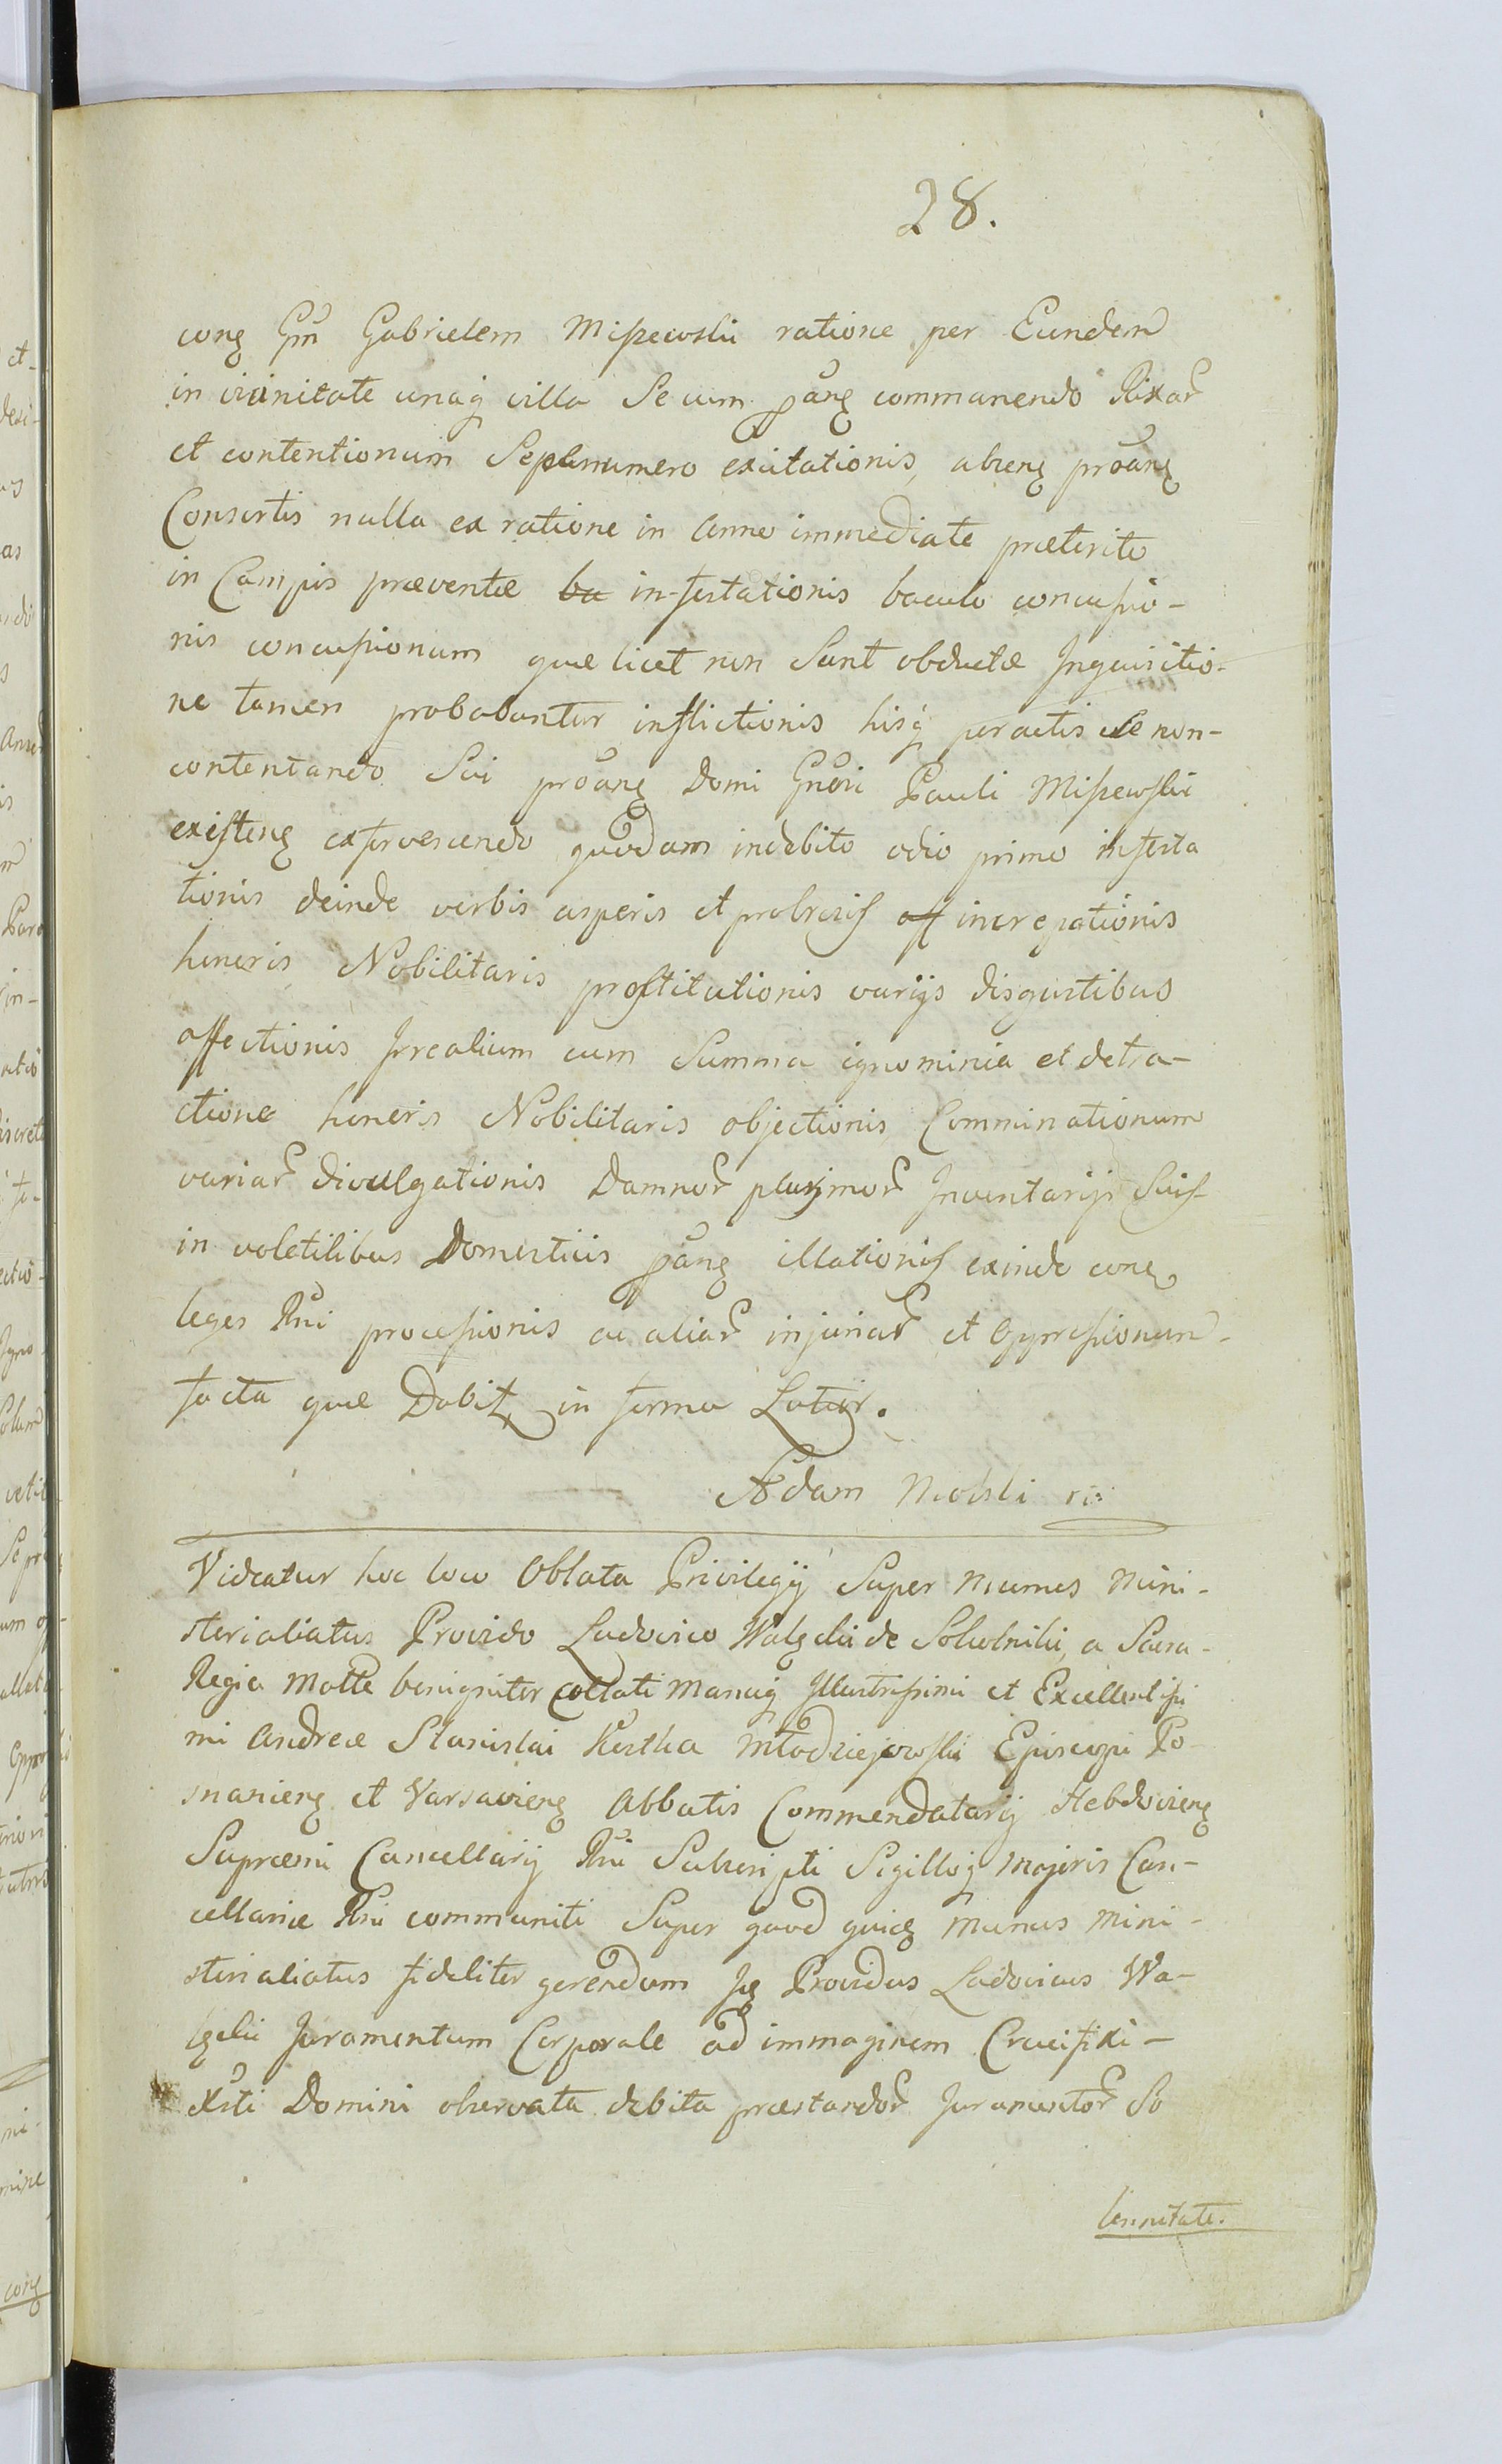 28.
conq Gm Gabrielem Miszewski ratione per Eundem
in vicinitate unaq villa Secum pānq commanendo Rixar
et contentionum Sepenumero excitationis, absenq proānq
Consortis nulla ex ratione in Anno immediate præterito
in Campis præventæ in-festationis baculo concussio-
nis concussionum quæ licet non Sunt obductæ Inquisitio-
ne tamen probabuntur inflictionis hisq peractis se non-
contentando Sui proānq Domi Gnōri Pauli Miszewski
existenq exfervescendo quodam indebito odio primo infesta
tionis deinde verbis asperis et probrosis increpationis
honoris Nobilitaris prostitutionis varijs disgustibus
affectionis Irrealium cum Summa ignominia et detra-
ctione honoris Nobilitaris objectionis Comminationum
variar divulgationis Damnor plurimor Inventarijs Suis
in volatilibus Domesticis pānq illationis exinde conq
leges Rni processionis ac aliar injuriar et Oppressionum-
facta quæ Dabit in forma Latior.
Adam Mokski
Videatur hoc loco Oblata Privilegij Super munus Mini-
sterialiatus Provido Ludovico Walgelii de Sokolniki, a Sacra-
Regia Matte benigniter Collati manuq Illustrissimi et Excellentissi
mi Andreæ Stanislai Kostka Młodziejowski Episcopi Po-
snanienq et Varsavienq Abbatis Commendatarij Hebdovienq
Supræmi Cancellarij Rni Subscripti Sigilloq Majoris Can-
cellariæ Rni communiti Super quod quidq munus Mini-
sterialiatus fideliter gerendum Iq Providus Ludovicus Wa-
lgelii Juramentum Corporale ad immaginem Crucifixi-
Xsti Domini observata debita præstandor Juramentor So
lennitate.